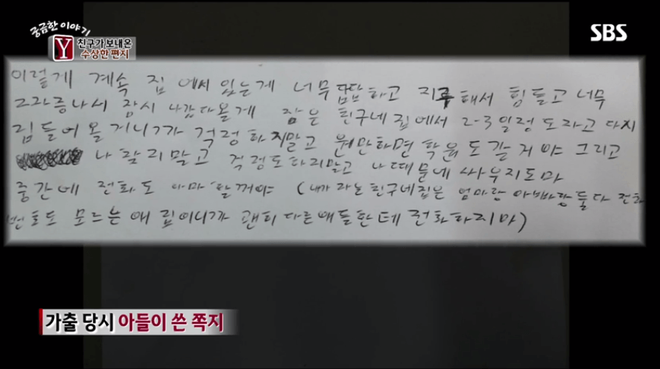 궁금한 이야기
Y
친구가 보내온
수상한 편지
SBS
이렇게 계속 집에서 있는게 너무 답답하고 지루해서 힘들고 너무
짜증나서 잠시 나갔다올게 잠은 친구네 집에서 2-3일정도자고 다시
집들어올거니까 걱정하지말고 웬만하면 학원도갈거야 그리고
나 찾지말고 걱정도하지말고 나때문에 싸우지도마
중간에 전화도 아마 할꺼야 (내가 자는 친구네집은 엄마랑 아빠랑 둘다 전화
번호도 모르는애 집이니까 괜히 다른애들한테 전화하지마)
가출 당시 아들이 쓴 쪽지